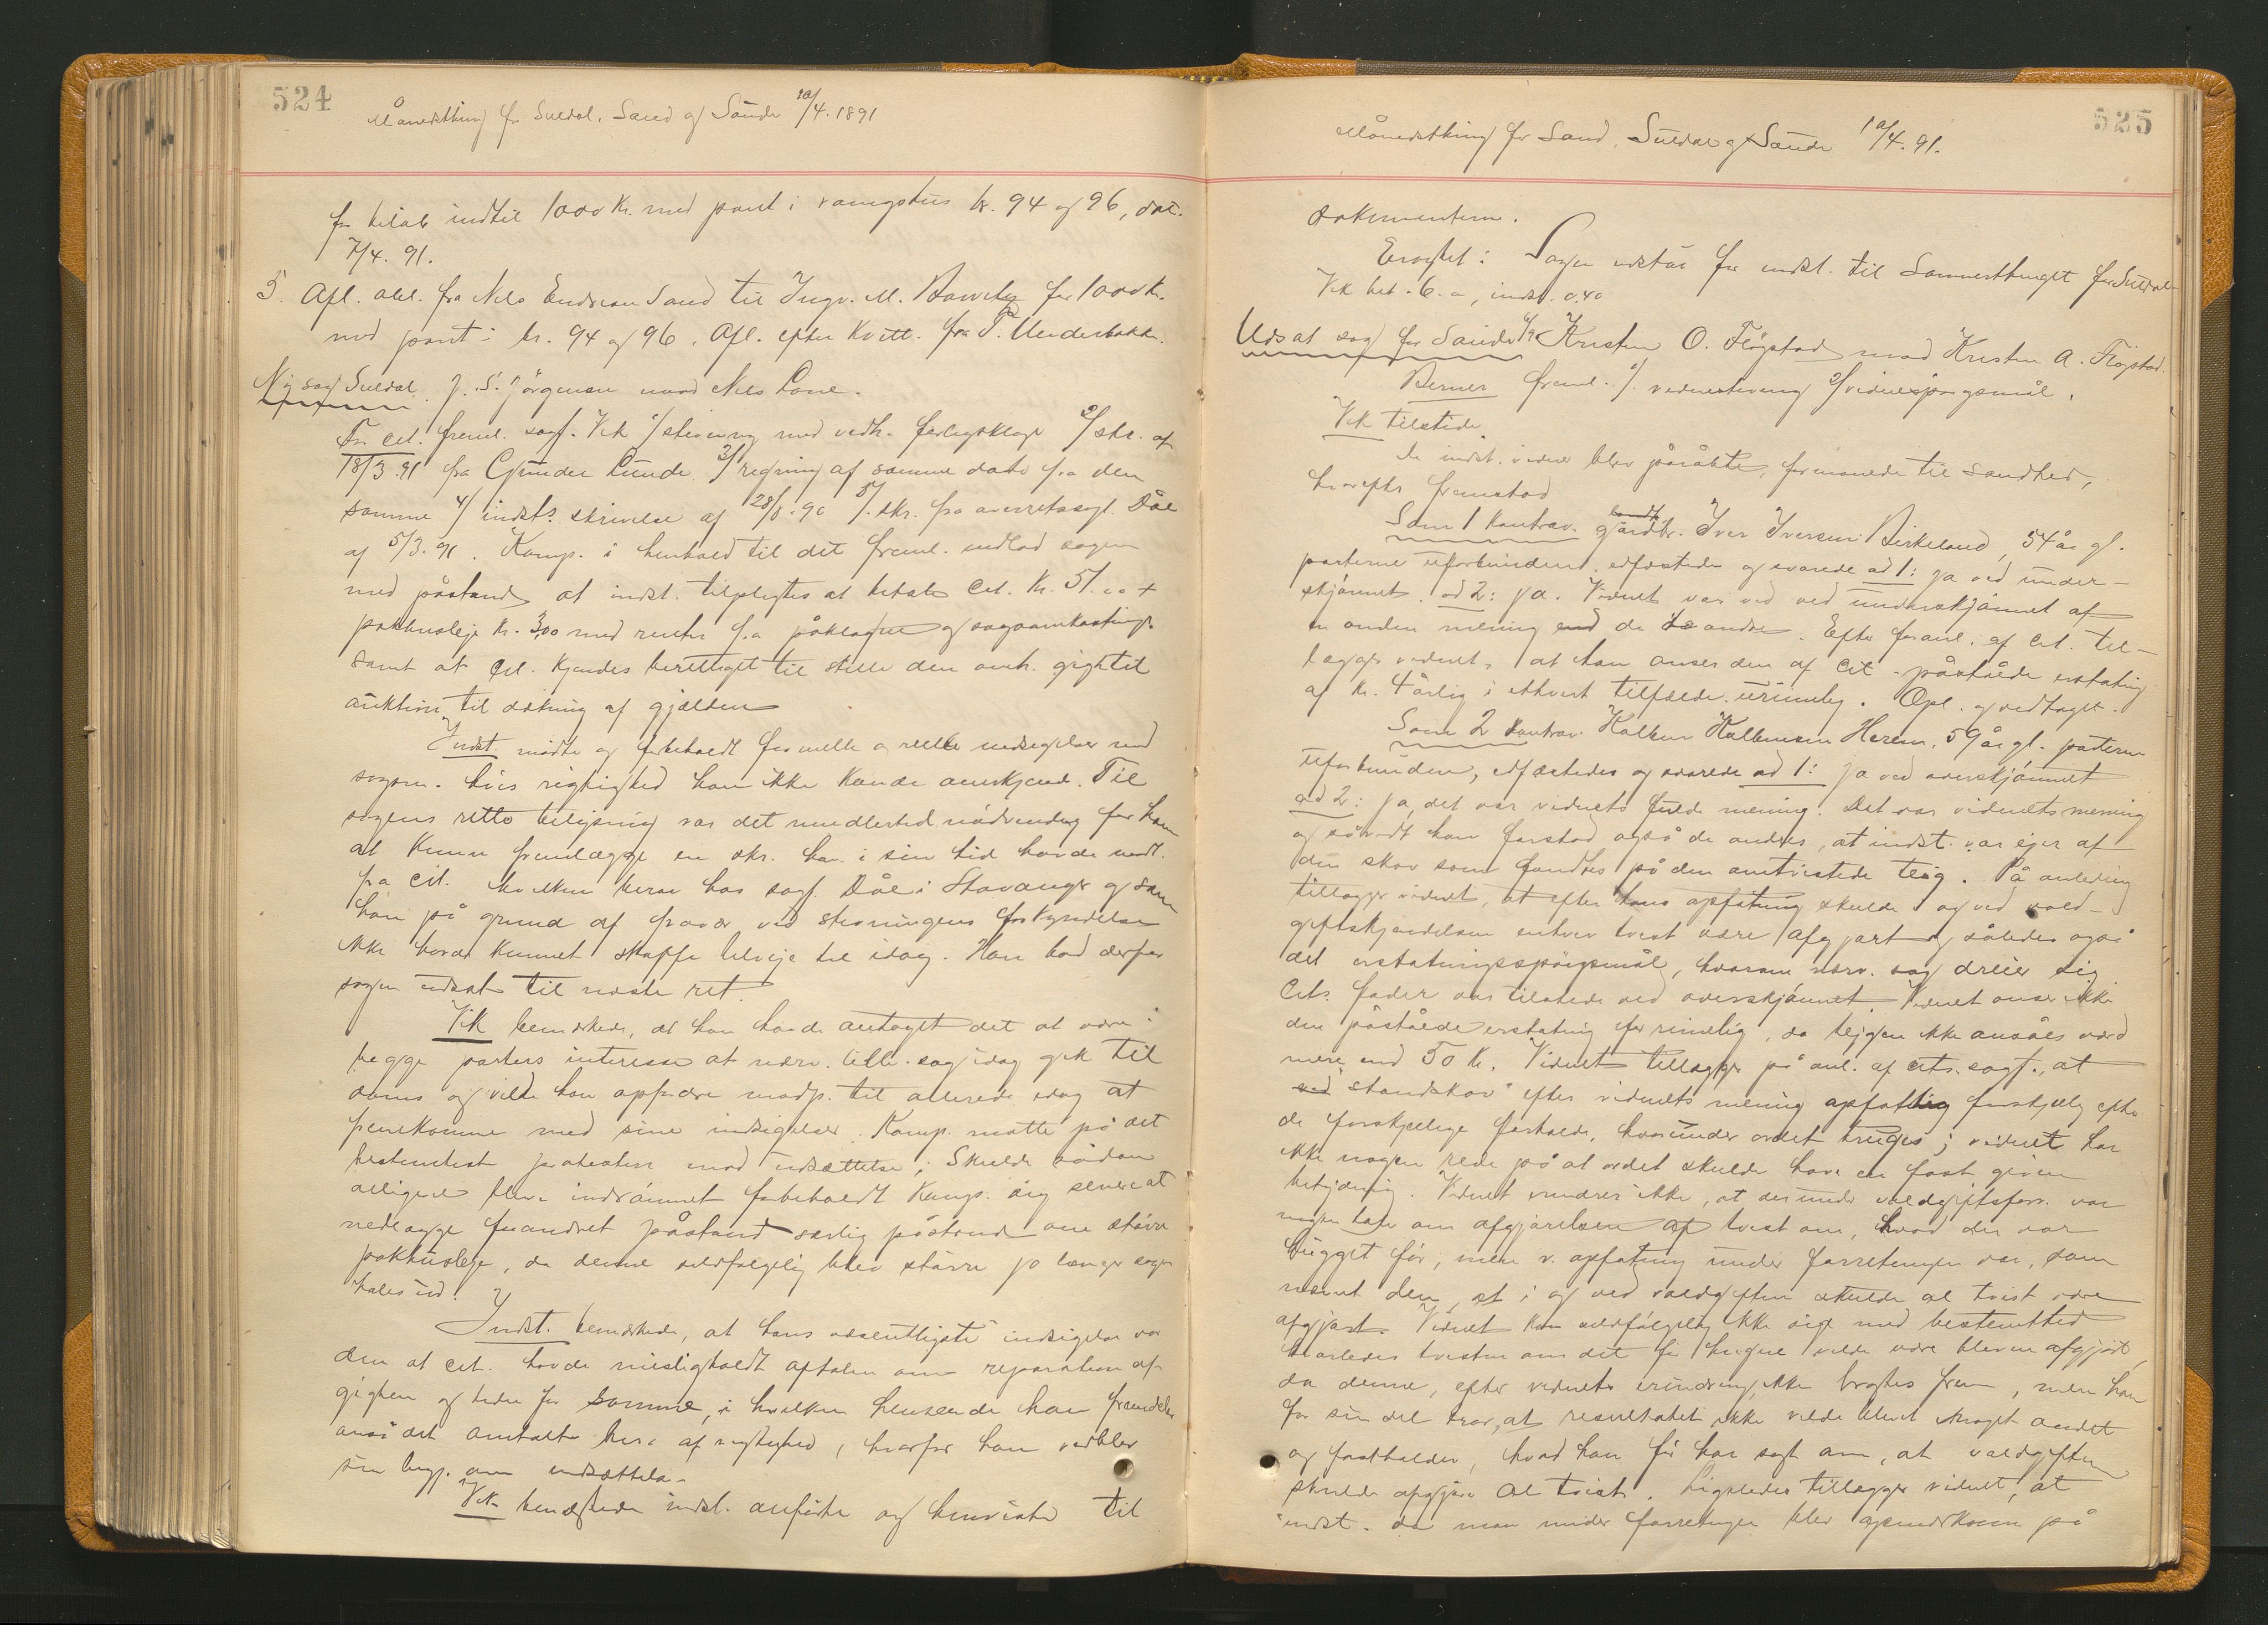 524
Månedsthing for Suldal, Sand og Saude 10/4. 1891
for beløb indtil 1000 Kr. med pant i vaaningshus br. 94 og 96, dat.
7/4. 91.
5. Afl. obl. fra Nils Endresen Sand til Ingv. M. for 1000 Kr.
mod pant i br. 94 og 96. Afl. efter Kvitt. fra P. Underbakke.
Ny sag Suldal. J. S. Jørgensen mod Nils Lone.
For cit. freml. sagf. Vik 1/ stevning med vedh. forligsklage 2/ skr. af
18/3. 91 fra Gunder Lunde 3/ regning af samme dato fra den
samme 4/ indst.s skrivelse af 28/8. 90 5/ skr. fra overretssagf. Dåe
af 5/3. 91. Komp. i henhold til det freml. indlod sagen
med påstand at indst. tilpligtes at betale cit. Kr. 51.00 +
pakhusleje Kr. 3,00 med renter f.a påklagen og sagsomkostninger
samt at cit. kjendes berettiget til stille den omh. gig til
auktion til dækning af gjælden
Indst. mødte og forbeholdt formelle og reelle indsigelser mod
sagen. hvis rigtighed han ikke kunde anerkjende. Til
sagens rette belysning var det imidlertid nødvendig for ham
at kunne fremlægge en skr. han i sin tid havde modt.
fra cit. hvilken beror hos sagf. Dåe i Stavanger og som
han på grund af fravær ved stevningens forkyndelse
ikke havde kunnet skaffe tilveje til idag. Han bad derfor
sagen udsat til næste ret.
Vik bemærkede, at han havde antaget det at være i
begge parters interesse at nærv. lille sag idag gik til
doms og vilde han opfordre modp. til allerede idag at
fremkomme med sine indsigelser. Komp. måtte på det
bestemteste protestere mod udsættelse; Skulde sådan
alligevel blive indrømmet forbeholdt Komp. sig senere at
nedlægge forandret påstand særlig påstand om større
pakhusleje, da denne selvfølgelig blev større jo længer sagen
hales ud.
Indst. bemærkede, at hans væsentligste indsigelse var
den at cit. havde misligholdt aftalen om reparation af
gigten og leden for samme, i hvilken henseende han fremdeles
anså det omtalte brev af vigtighed, hvorfor han vedblev
sin begj. om udsættelse.
Vik benægtede indst. anførte og henviste til
525
Månedsthing for Sand, Suldal og Saude 10/4. 91.
dokumenterne.
Eragtet: Sagen udstår for indst. til Sommerthinget for Suldal
Vik bet. 6. a, indst. 0.40
Udsat sag for Saude 4/91 Kristen O. Fløgstad mod Kristen A. Fløgstad.
Berner freml. 1/ vidnestevning 2/ vidnespørgsmål.
Vik tilstede
De indst. vidner blev påråbte, formanede til sandhed,
hvorefter fremstod
Som 1 kontrav. gårdbr. Iver Iversen Birkeland, 54 år gl.
parterne uforbunden, edfæstedes og svarede ad 1: ja ved under-
skjønnet. ad 2: ja. Vidnet var ved ved underskjønnet af
en anden mening end de to andre. Efter foranl. af cit. til-
lægger vidnet, at han anser den af cit. påståede erstatning
af Kr. 4 årlig i ethvert tilfælde urimelig. Opl. og vedtaget.
Som 2 kontrav. Kolbein Kolbeinsen Herem, 59 år gl. parterne
uforbunden, edfæstedes og svarede ad 1: ja ved overskjønnet
ad 2: ja, det var vidnets fulde mening. Det var vidnets mening
og såvidt han forstod også de andres, at indst. var ejer af
den skov som fandtes på den omtvistede teig. På anledning
tillægger vidnet, at efter hans opfatning skulde i og ved vold-
giftskjendelsen enhver tvist være afgjort og således også
det erstatningsspørgsmål, hvorom nærv. sag dreier sig
Cits. fader var tilstede ved overskjønnet. Vidnet anser ikke
den påståede erstatning for rimelig, da tejgen ikke ansåes værd
mere end 50 Kr. Vidnet tillægger på anl. af cits. sagf., at
ved "standskov" efter vidnets mening opfattes forskjellig efter
de forskjellige forholde, hvorunder ordet bruges; vidnet har
ikke nogen rede på at ordet skulde have en fast given
betydning. Vidnet mindres ikke, at der under voldgiftsforr. var
nogen tale om afgjørelsen af tvist om, hvad der var
hugget før, men v. opfatning under forretningen var, som
nævnt den, at i og ved voldgiften skulde al tvist være
afgjort. Vidnet kan selvfølgelig ikke sige med bestemthed
hvorledes tvisten om det før hugne vilde være bleven afgjort,
da denne, efter vidnets erindring, ikke bragtes frem, men han
for sin del tror, at resultatet ikke vilde blevet noget andet
og fastholder, hvad han før har sagt om, at voldgiften
skulde afgjøre al tvist. Ligeledes tillægger vidnet, at
indst. da man under forretningen blev opmerksom på